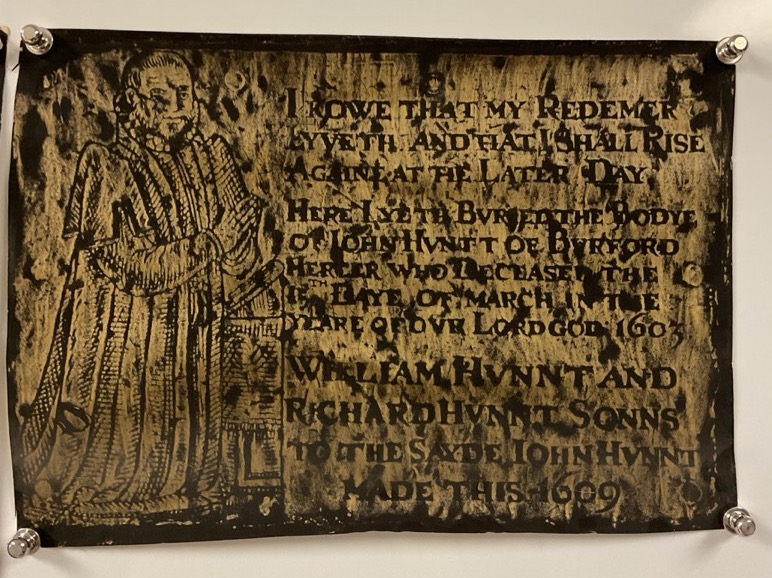 I KOWE THAT MY REDEMER
LYVETH AND THAT I SHALL RISE
AGAINE AT HE LATER DAY
HERE LYETH BVRIED THE BODYE
OF IOHN HVNTT OF BVRFORD
MERCER WHO DECEASED THE
DAYE OF MARCH IN THE
YEARE OF OVR LORD GOD 1603
WILLIAM HVNNT AND
RICHARD HVNNT SONNS
TO THE SAYDE IOHN HVNNT
MADE THIS 1609